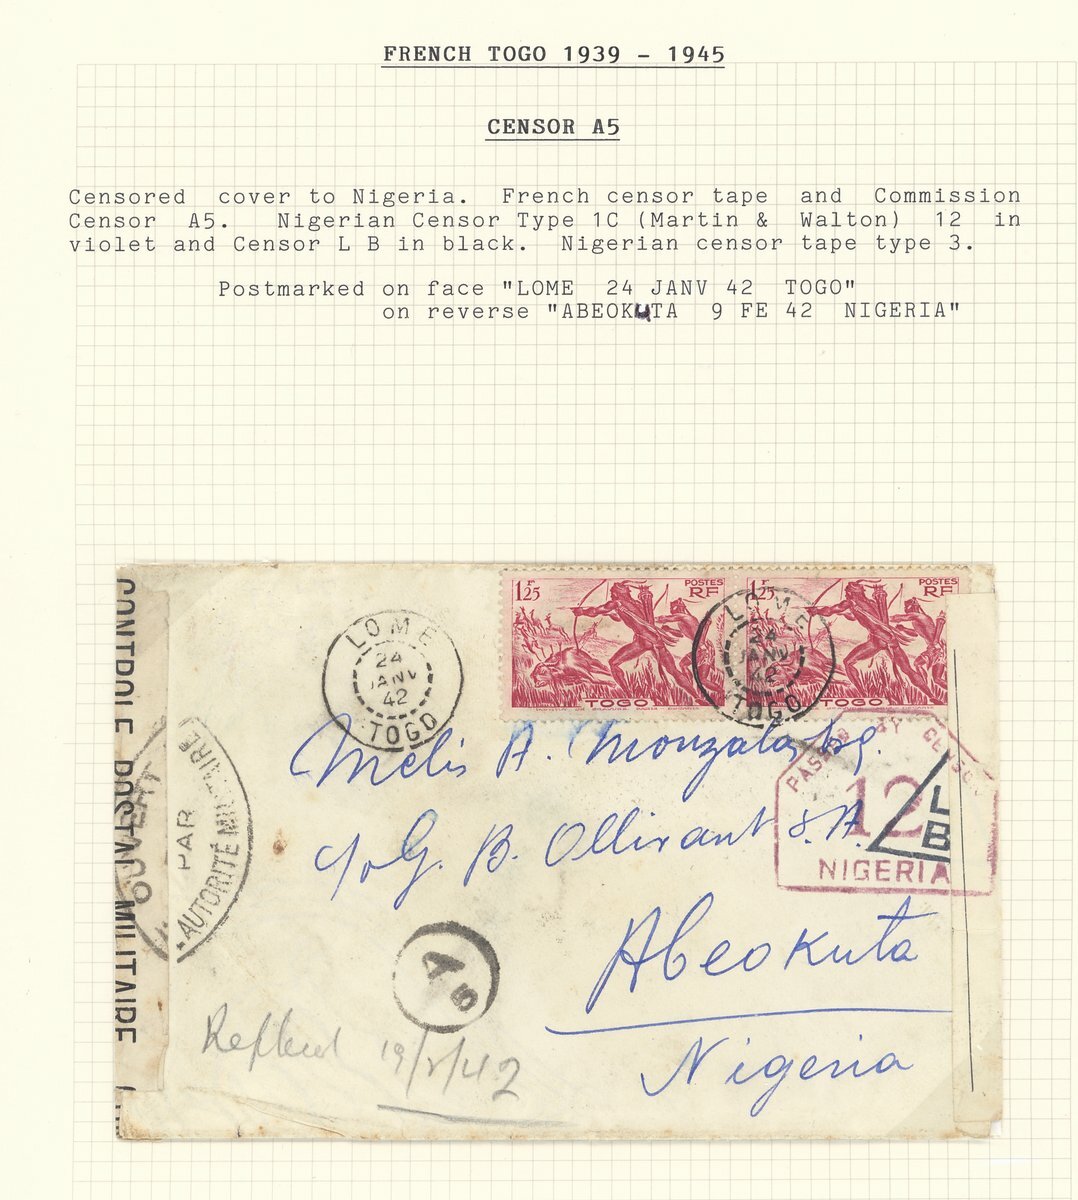 FRENCH TOGO 1939 - 1945
CENSOR A5
Censored cover to Nigeria. French censor tape and Commission
Censor A5. Nigerian Censor Type 1C (Martin & Walton) 12 in
violet and Censor L B in black. Nigerian censor tape type 3.
Postmarked on face "LOME 24 JANV 42 TOGO"
on reverse "ABEOKUTA 9 FE 42 NIGERIA"
CONTROLE POSTAL MILITAIRE
OUVERT
PAR
AUTORITÉ MILITAIRE
LOME
24
JANV
42
TOGO
1F25
POSTES
RF
TOGO
1F25
POSTES
RF
TOGO
LOME
24
JANV
42
TOGO
PASSED BY CENSOR
12
NIGERIA
L
B
A.
c/o G. B. Ollivant & A
Abeokuta
Nigeria
A
5
19/2/42